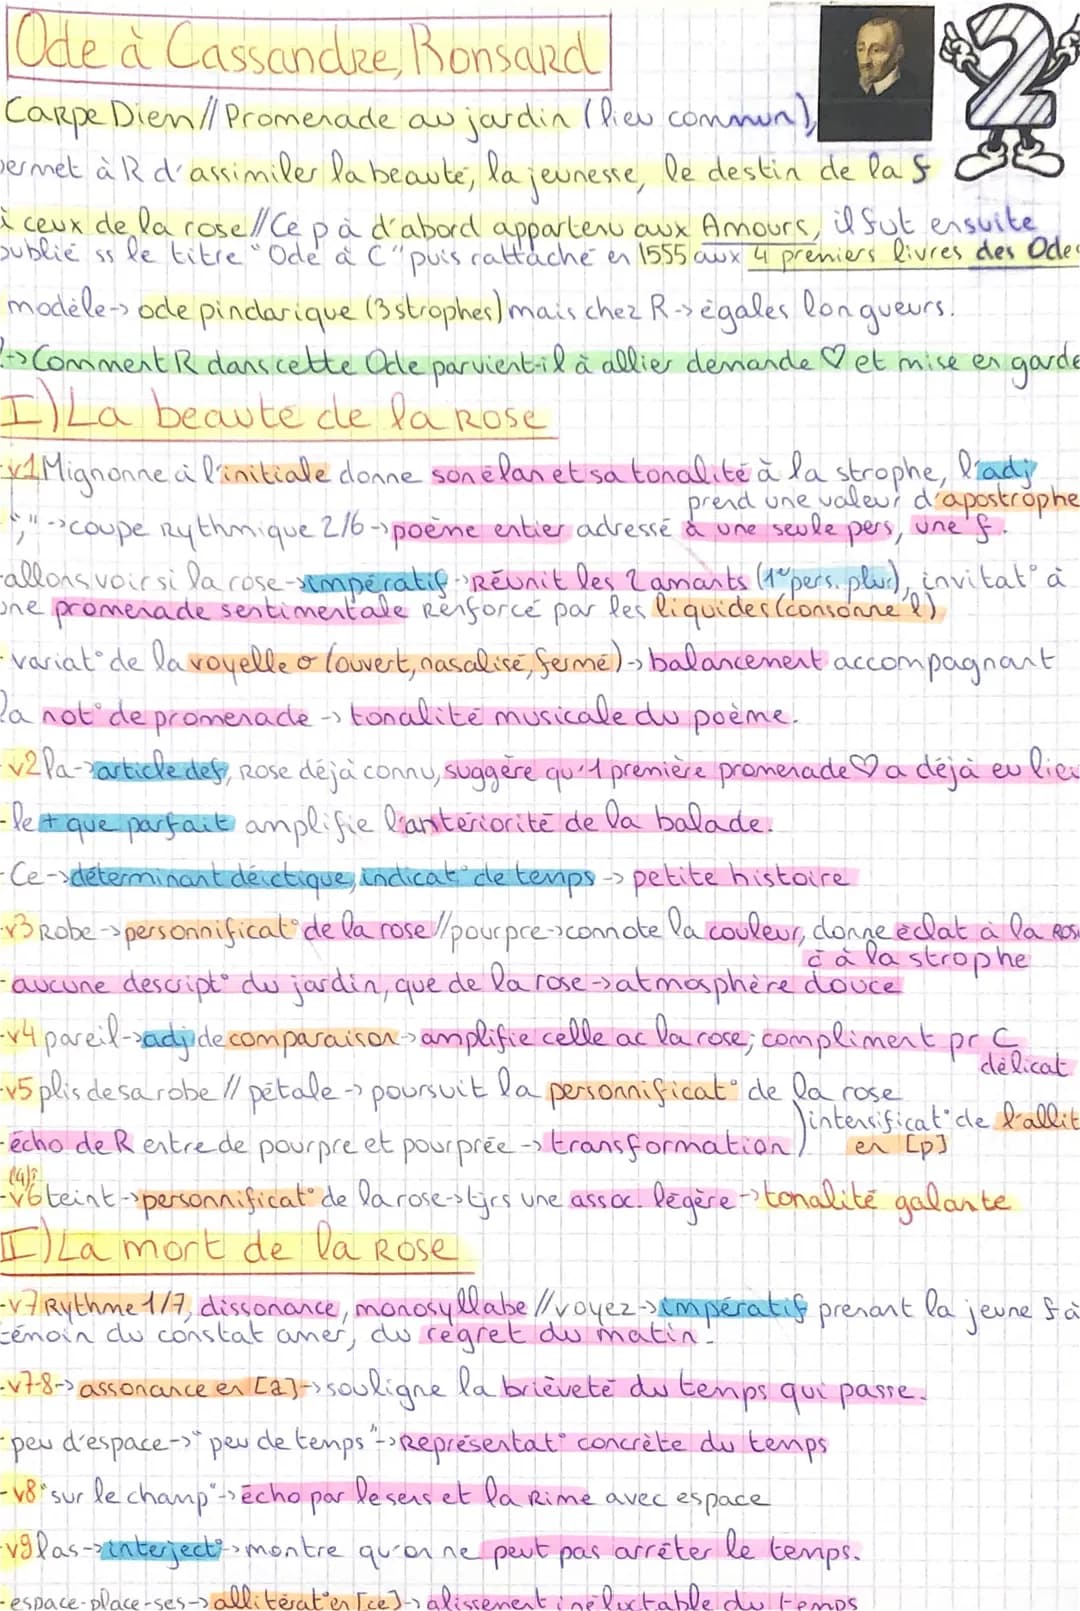 Ode à Cassandre, Ronsard
2
Carpe Dien // Promenade au jardin (lieu commun),
permet à R d'assimiler la beauté, la jeunesse, le destin de la f
à ceux de la rose // Ce p à d'abord appartenu aux Amours, il fut ensuite
publié ss le titre "Ode à C" puis rattaché en 1555 aux 4 premiers livres des Odes
modèle-> ode pindarique (3 strophes) mais chez R -> égales longueurs.
-> Comment R dans cette Ode parvient-il à allier demande ♡ et mise en garde
I) La beauté de la rose
v1 Mignonne à l'initiale donne son élan et sa tonalité à la strophe, l'adj
prend une valeur d'apostrophe
"," -> coupe rythmique 2/6 -> poème entier adressé à une seule pers, une f.
-allons voir si la rose -> impératif -> Réunit les 2 amants (1e pers. plur), invitat° à
une promenade sentimentale renforcé par les liquides (consonne l)
-variat° de la voyelle o (ouvert, nasalisé, fermé) -> balancement accompagnant
la not° de promenade -> tonalité musicale du poème.
-v2 la -> article def, rose déjà connu, suggère qu'1 première promenade ♡ a déjà eu lieu
-le + que parfait amplifie l'antériorité de la balade.
-Ce -> déterminant déictique, indicat° de temps -> petite histoire
-v3 Robe -> personnificat° de la rose // pourpre -> connote la couleur, donne éclat à la rose
à la strophe
-aucune descript° du jardin, que de la rose -> atmosphère douce
-v4 pareil -> adj de comparaison -> amplifie celle ac la rose; compliment pr C
délicat
-v5 plis de sa robe // pétale -> poursuit la personnificat° de la rose
) intensificat° de l'allit
-écho de R entre de pourpre et pourprée -> transformation) en [p]
-v6 teint -> personnificat° de la rose -> tjrs une assoc. légère -> tonalité galante
II) La mort de la rose
-v7 Rythme 1/7, dissonance, monosyllabe // voyez -> impératif prenant la jeune f à
témoin du constat amer, du regret du matin.
-v7-8 -> assonance en [a] -> souligne la brièveté du temps qui passe.
-peu d'espace -> "peu de temps" -> Représentat° concrète du temps
-v8 "sur le champ" -> écho par le sens et la rime avec espace
-v9 las -> interject° -> montre qu'on ne peut pas arrêter le temps.
-espace-place-ses -> allitérat° en [ce] -> glissement inéluctable du temps